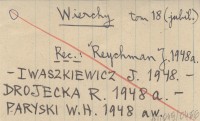 Wierchy tom 18 (jubil.)
Rec.: Reychman J. 1948a.
- IWASZKIEWICZ J. 1948. -
DROJECKA R. 1948a. -
PARYSKI W.H. 1948 a.w.